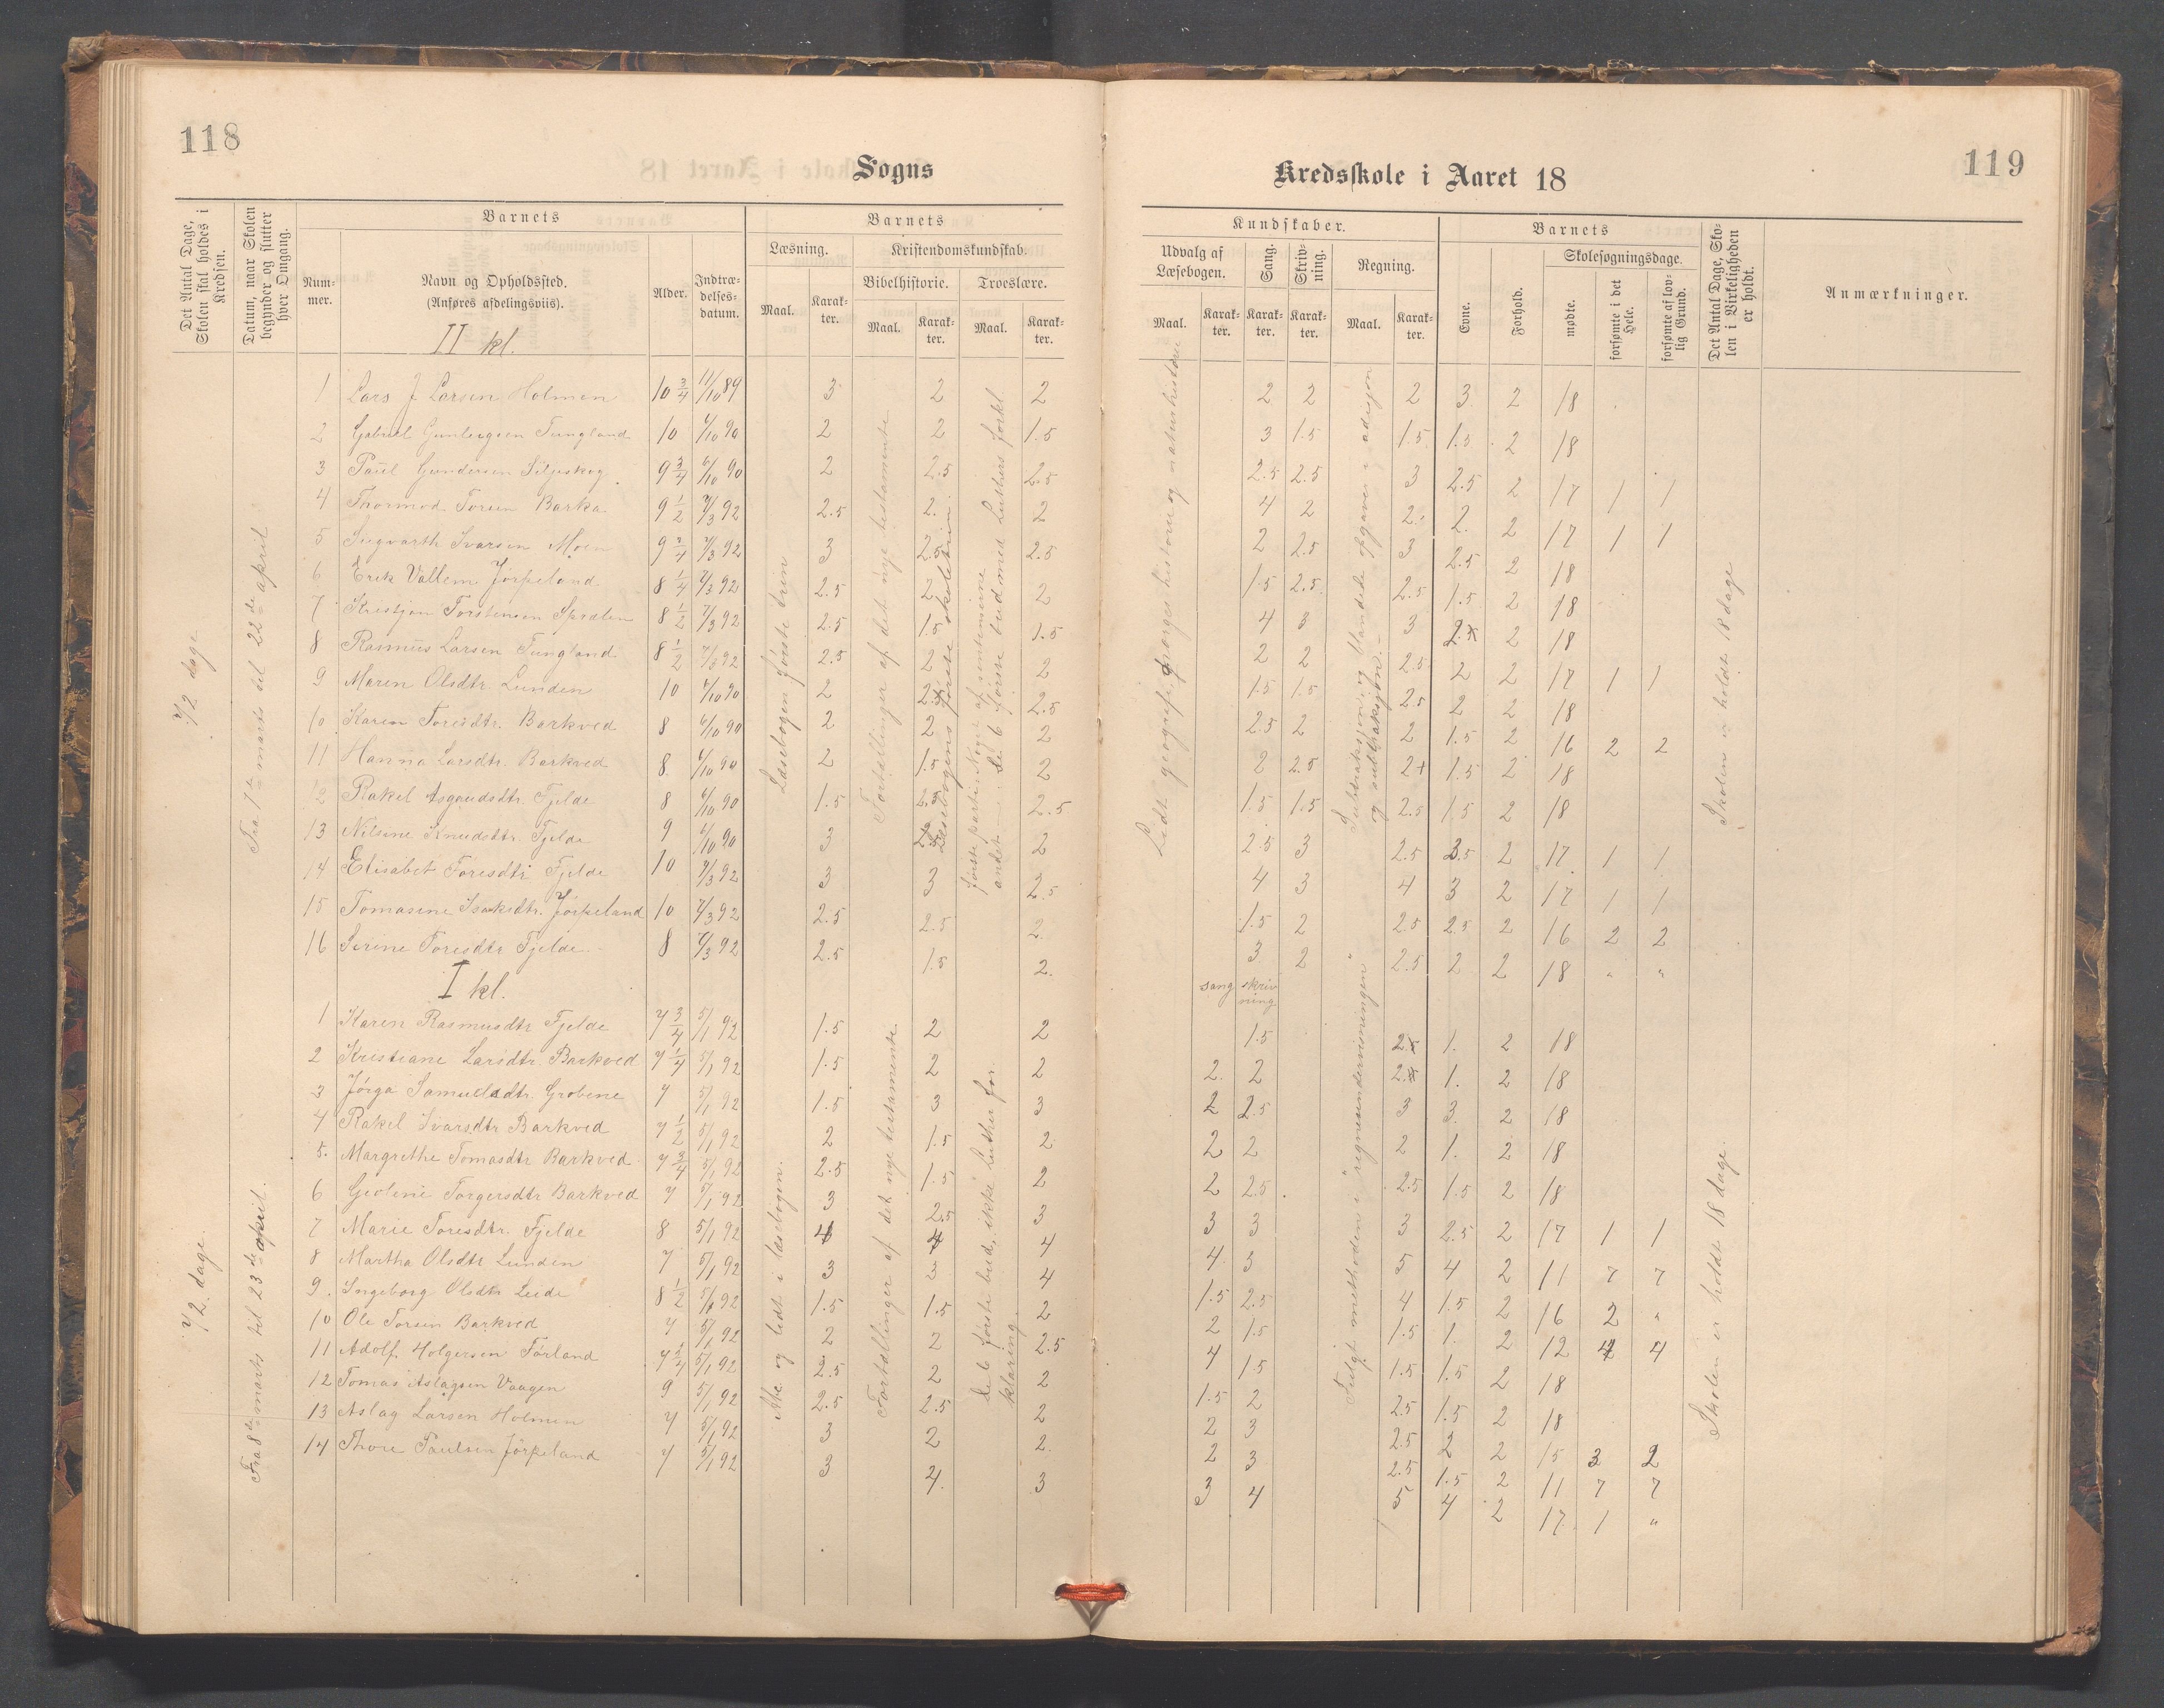 118
119
Sogns
Kredsskole i Aaret 18
Det Antal Dage, Skolen skal holdes i Kredsen.
Datum, naar Skolen begynder og slutter hver Omgang.
Barnets
Nummer.
Navn og Opholdssted.
(Anføres afdelingsviis).
Alder.
Indtrædelsesdatum.
Barnets
Læsning.
Maal.
Karakter.
Kristendomskundskab.
Bibelhistorie.
Maal.
Karakter.
Troeslære.
Maal.
Karakter.
Kundskaber.
Udvalg af Læsebogen.
Maal.
Karakter.
Sang.
Karakter.
Skrivning.
Karakter.
Regning.
Maal.
Karakter.
Barnets
Evne.
Forhold.
Skolesøgningsdage.
mødte.
forsømte i det Hele.
forsømte af lovlig Grund.
Det Antal Dage, Skolen i Virkeligheden er holdt.
Anmærkninger.
II kl.
1 Lars J Larsen Holmen 10 3/4 11/10 89 3 2 2 2 2 2 3 2 18
2 Gabriel Tungland 10 6/10 90 2 2 1.5 3 1.5 1.5 1.5 2 18
3 Paul Gundersen 9 3/4 6/10 90 2 2.5 2.5 2.5 2.5 3 2.5 2 17 1 1
4 Thormod Torsen Barka 9 1/2 7/3 92 2.5 2. 2 4 2 2. 2. 2 17 1 1
5 Sigvarth Ivarsen Moen 9 7/3 92 3 2.5 2.5 2 2.5 3 2.5 2 18
6 Erik Vallem Jørpeland 8 1/4 7/3 92 2.5 2 2 1.5 2.5 2.5 1.5 2 18
7 Kristjan Torstensen 8 1/2 7/3 92 2.5 1.5 1.5 4 3 3 2 2 18
8 Rasmus Larsen Tungland 8 1/2 7/3 92 2.5 2 2 2 2 2.5 2 2 17 1 1
9 Maren Olsdtr. Lunden 10 6/10 90 2 2 2.5 1.5 1.5 2.5 2 2 18
10 Karen Toresdtr. Barkved 8 6/10 90 2 2 2 2.5 2 2 1.5 2 16 2 2
11 Hanna Larsdtr. Barkved 8 6/10 90 2 1.5 2 2 2.5 2 1.5 2 18
12 Rakel Asgautsdtr Fjelde 8 6/10 90 1.5 2.5 1.5 1.5 2.5 1.5 2 18
13 Nilsine Knudsdtr. Fjelde 9 6/10 90 3 2 2.5 3 2.5 3.5 2 17 1 1
14 Elisabet Toresdtr Fjelde 10 7/3 92 3 3 2.5 4 3 4 3 2 17 1 1
15 Tomasine Isaksdtr. Jørpeland 10 7/3 92 2.5 2.5 2. 1.5 2 2.5 2.5 2 16 2 2
16 Serine Toresdtr Fjelde 8 7/3 92 2.5 1.5 2. 3 2 2.5 2 2 18 " "
1/2 dage
Fra 1te marts til 22de april
Læsebogen første trin
Fortællinger af det nye testamente
Læsebogens første skoletrin
første parti. Nogle af sentenserne
De 6 første bud med Luthers forkl
Lidt geografi, norges historie og naturhistorie
Subtraksjon og blandede opgaver i adisjon
og subtraksjon.
Skolen er holdt 18 dage
I kl.
sang skrivning
1 Karen Rasmusdtr Fjelde 7 3/4 5/1 92 1.5 2 2 1.5 2 1. 2 18
2 Kristiane Larsdtr. Barkved 7 1/4 5/1 92 1.5 2 2 2. 2 2 1. 2 18
3 Jørga Samuelsdtr. Grobene 7 5/1 92 1.5 3 3 2 2.5 3 3. 2 18
4 Rakel Ivarsdtr Barkved 7 1/2 5/1 92 2 1.5 2 2 2 2 1. 2 18
5. Margrethe Tomasdtr Barkved 7 3/4 5/1 92 2.5 1.5 2 2 2.5 2.5 1.5 2 18
6 Geoline Torgersdtr Barkved 7 5/1 92 3 2.5 3 3 3 3 2.5 2 17 1 1
7 Marie Toresdtr. Fjelde 8 5/1 92 4 4 4 4 3 5 4 2 11 7 7
8 Martha Olsdtr Lunden 7 5/1 92 3 2 4 1.5 2.5 4 1.5 2 16 2 "
9. Ingeborg Olsdtr Leide 8 1/2 5/1 92 1.5 1.5 2 2 1.5 1.5 1. 2 12 4 4
10 Ole Torsen Barkved 7 5/1 92 2 2 2.5 4 1.5 1.5 1.5 2 18
11 Adolf Holgersen Førland 7 5/1 92 2.5 2 2 1.5 2 2.5 1.5 2 18
12 Tomas Aslagsen Vaagen 9 5/1 92 2.5 2.5 2 2 3 2.5 2 2 15 3 2
13 Aslag Larsen Holmen 7 5/1 92 3 2 2. 2 3 2.5 1.5 2 11 7 7
14 Thore Paulsen Jørpeland 7 5/1 92 3 4. 3 3 4 5 4 2 17 1 "
1/2 dage.
Fra 8de marts til 23de april.
Abc og lidt i læsebogen.
Fortællinger af det nye testamente
De 6 første bud, ikke Luther for-
klaring.
Fulgt methoden i "regneundervisningen"
Skolen er holdt 18 dage.